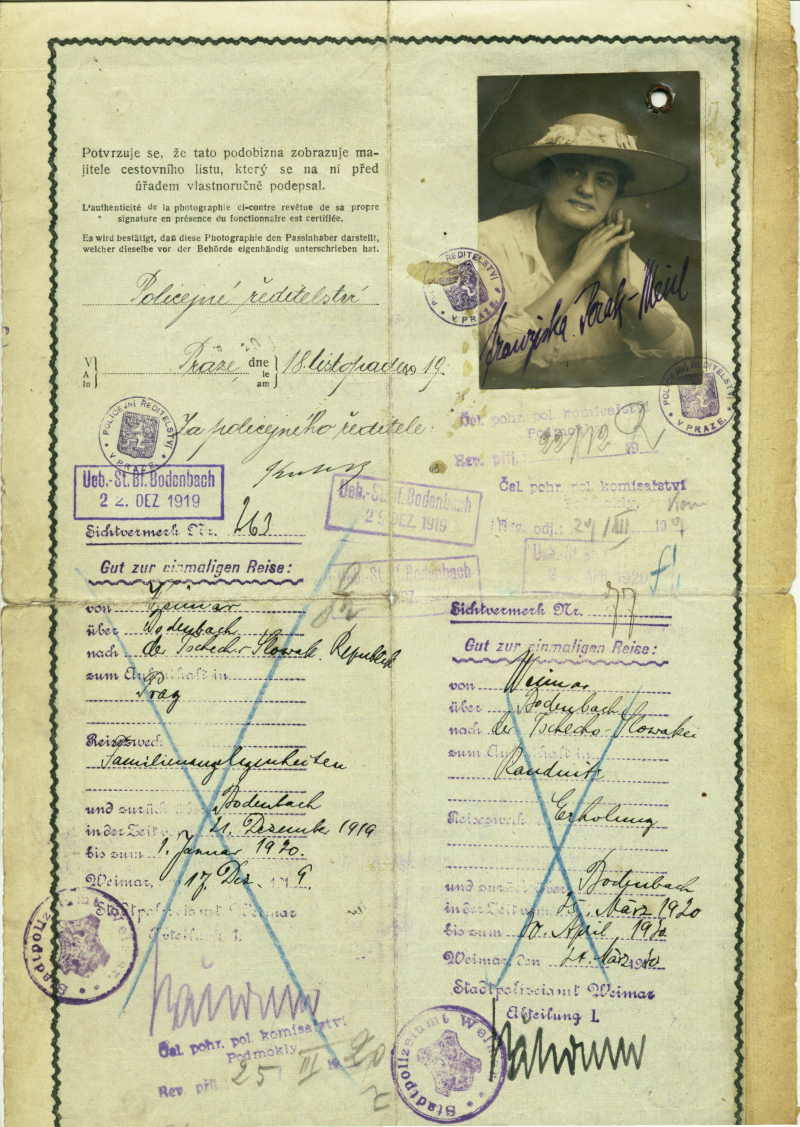 Potvrzuje se, že tato podobizna zobrazuje ma-
jitele cestovního listu, který se na ni před
úřadem vlastnoručně podepsal.
L'authenticité de la photographie ci-contre revêtue de sa propre
signature en présence du fonctionnaire est certifiée.
Es wird bestätigt, daß diese Photographie den Passinhaber darstellt,
welcher dieselbe vor der Behörde eigenhändig unterschrieben hat.
Policejné ředitelství
V
A
In
Praze,
dne
le
am
18. listopadu 19
POLICEJNÍ ŘEDITELSTVÍ
V PRAZE
Za policejného ředitele:
Ueb.-St. Bf. Bodenbach
22. DEZ 1919
Sichtvermerk Nr. 263
Gut zur einmaligen Reise:
von Weimar
über Bodenbach
nach der Tschecho Slowak. Republik
zum Aufenthalt in
Prag
Reisezweck
Familienangelegenheiten
und zurück über Bodenbach
in der Zeit 21. Dezember 1919
bis zum 1. Januar 1920.
Weimar, 17. Dez. 19
Stadtpolizeiamt Weimar
Abteilung 1.
Stadtpolizeiamt Weimar
Čsl. pohr. pol. komisařství
Podmokly
Rev. příj. 25 III 1920
ŘEDITELSTVÍ
V PRAZE
Franziska
POLICEJNÍ ŘEDITELSTVÍ
V PRAZE
Čsl. pohr. pol. komisařství
Rev. příj. 22/12
Čsl. pohr. pol. komisařství
Rev. odj.: 29/III
Ueb.-St. Bf. Bodenbach
29 DEZ 1919
St. Bf. Bodenbach
Sichtvermerk Nr. 77
Gut zur einmaligen Reise:
von Weimar
über Bodenbach
nach der Tschecho-Slowakei
zum Aufenthalt in
Raudnitz
Reisezweck Erholung
und zurück über Bodenbach
in der Zeit vom 25. März 1920
bis zum 10. April 1920
Weimar, den 24. März 1920
Stadtpolizeiamt Weimar
Abteilung I.
Stadtpolizeiamt Weimar